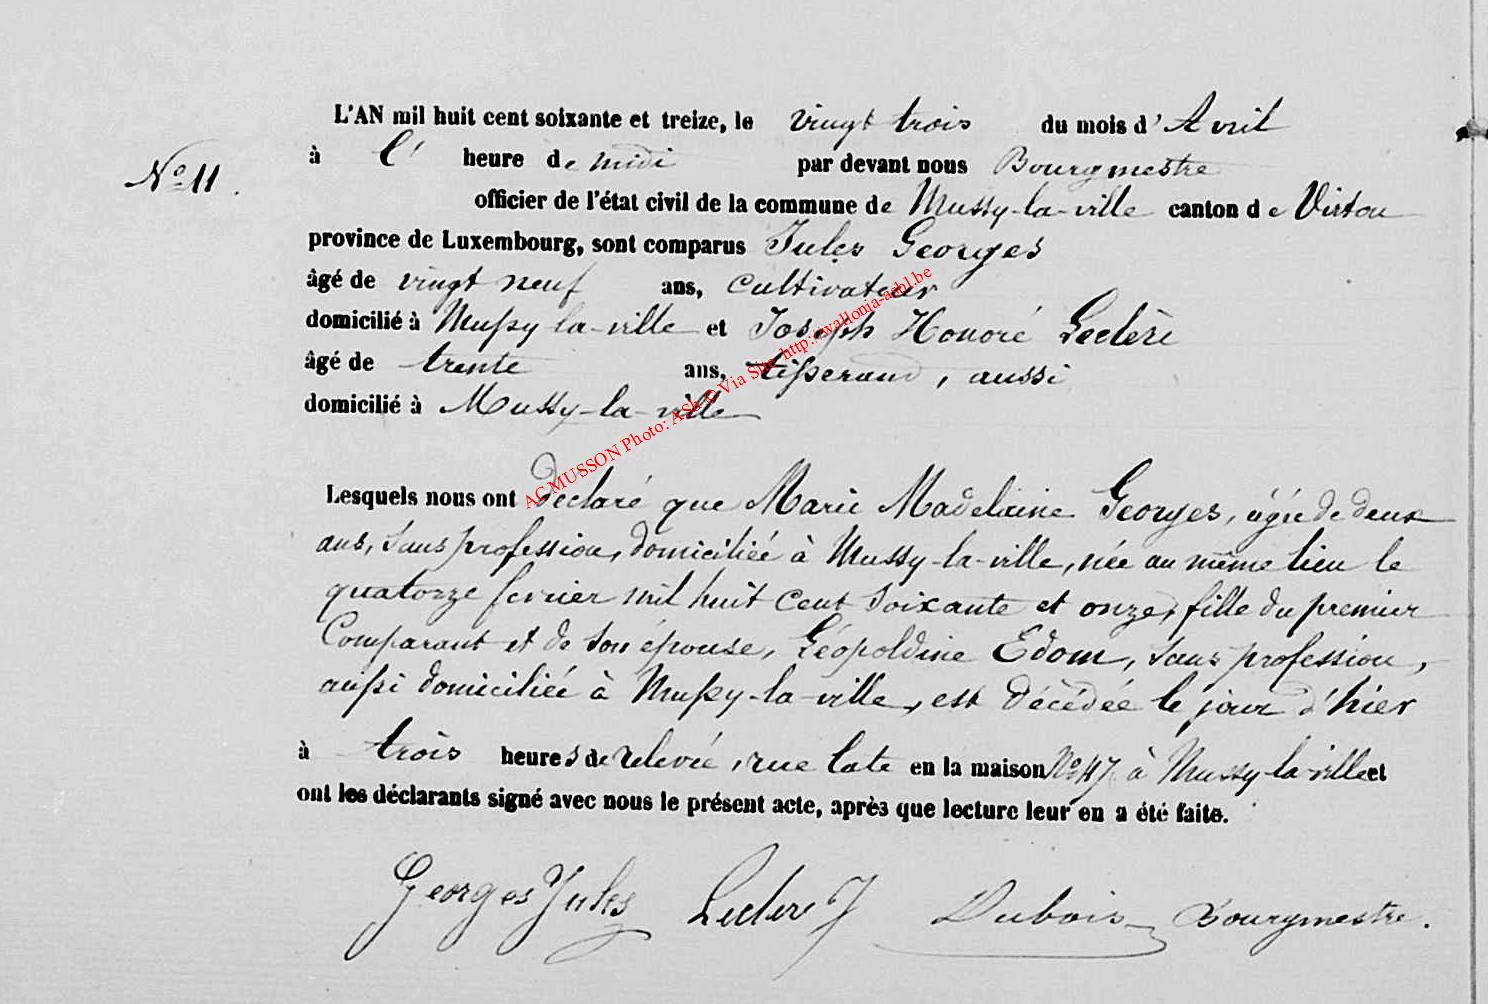 L'AN mil huit cent soixante et treize, le vingt trois du mois d'Avril
à l' heure de midi par devant nous Bourgmestre
No 11.
officier de l'état civil de la commune de Mussy-la-ville canton de Virton
province de Luxembourg, sont comparus Jules Georges
âgé de vingt neuf ans, cultivateur
domicilié à Mussy-la-ville et Joseph Honoré Leclère
âgé de trente ans, tisserand, aussi
domicilié à Mussy-la-ville
AC MUSSON Photo: ASb © Via Site http://wallonia-asbl.be
Lesquels nous ont déclaré que Marie Madelaine Georges, âgée de deux
ans, sans profession, domiciliée à Mussy-la-ville, née au même lieu le
quatorze fevrier mil huit cent soixante et onze, fille du premier
Comparant et de son épouse, Léopoldine Edom, sans profession,
aussi domiciliée à Mussy-la-ville, est décédée le jour d'hier
à trois heures de relevée, rue late en la maison No 47 à Mussy-la-ville et
ont les déclarants signé avec nous le présent acte, après que lecture leur en a été faite.
Georges Jules Leclere J Dubois Bourgmestre.